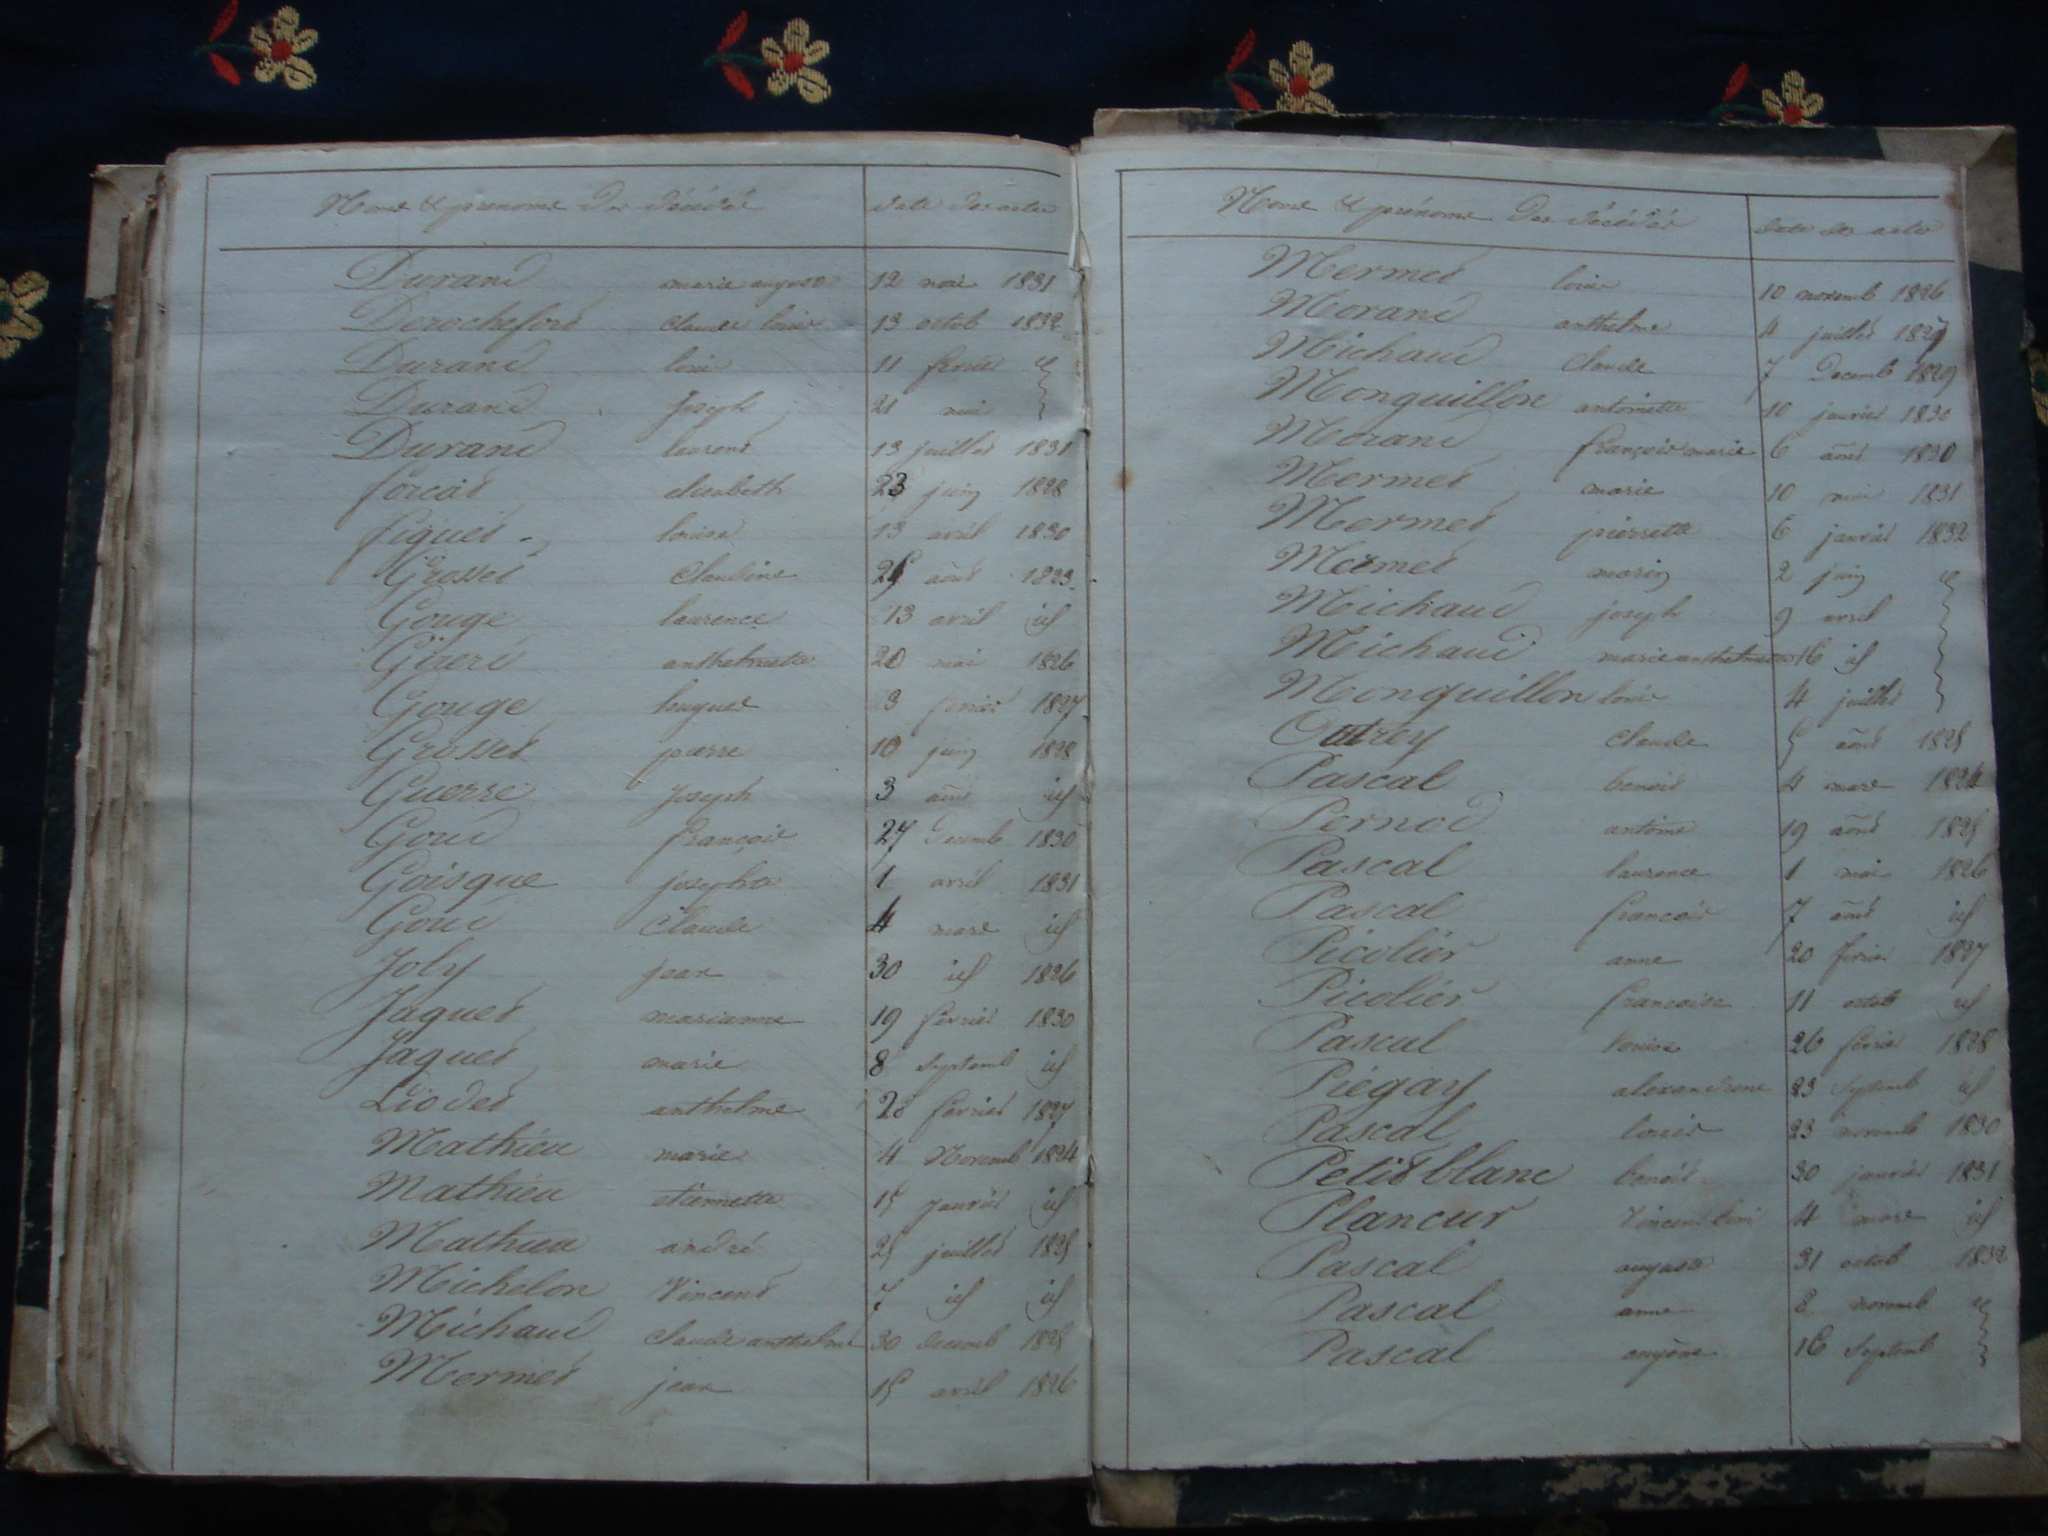 Noms & prénoms Des Décédés date des actes
Durand 12 mai 1831
Derochefort Claude louis 13 octob 1832
Durand louis 11 février id
Durand Joseph 21 mai
Durand laurent 13 juillet 1831
forcat élisabeth 23 juin 1828
figuet louise 13 avril 1830
Grosset Claudine août 1823
Gouge laurence 13 avril id
anthelmette 20 mai 1826
Gouge hugues 3 février 1827
Grosset pierre 10 juin 1828
Guerre Joseph 3 août id
Goud françois 27 Decemb 1830
Goisque josephte 1 avril 1831
Goud Claude 4 mars id
Joly jean 30 id 1826
Jaquet marianne 19 février 1830
Jaquet marie 8 septemb id
Liodet anthelme février 1827
Mathieu marie 4 Novemb 1824
Mathieu etiennette 15 janvier id
Mathieu andré 25 juillet 1825
Michelon Vincent 7 id id
Michaud Claude anthelme 30 decemb 1825
Mermet jean 15 avril 1826
Noms & prénoms Des Décédés date des actes
Mermet louis 10 novemb 1826
Morand anthelme 4 juillet
Michaud Claude 7 Decemb 1829
Monguillon antoinette 10 janvier 1830
Morand françois marie 6 août 1830
Mermet marie 10 mai 1831
Mermet pierrette 6 janvier 1832
Mermet marin 2 juin id
Michaud joseph 9 avril
Michaud marie anthelmette 16 id
Monguillon louis 4 juillet
Outrey Claude 5 août 1825
Pascal benoit 4 mars 1824
Pernod antoine 19 août 1825
Pascal laurence 1 mai 1826
Pascal françois 7 août id
Picolier anne 20 février 1827
Picolier françoise 11 octob id
Pascal louise 26 février 1828
Piégay alexandrine 23 septemb id
Pascal louis 23 novemb 1830
Petit blanc benoit 30 janvier 1831
Planeur Vincent 4 mars id
Pascal auguste 31 octob 1832
Pascal anne 8 novemb id
Pascal eugène 16 septemb